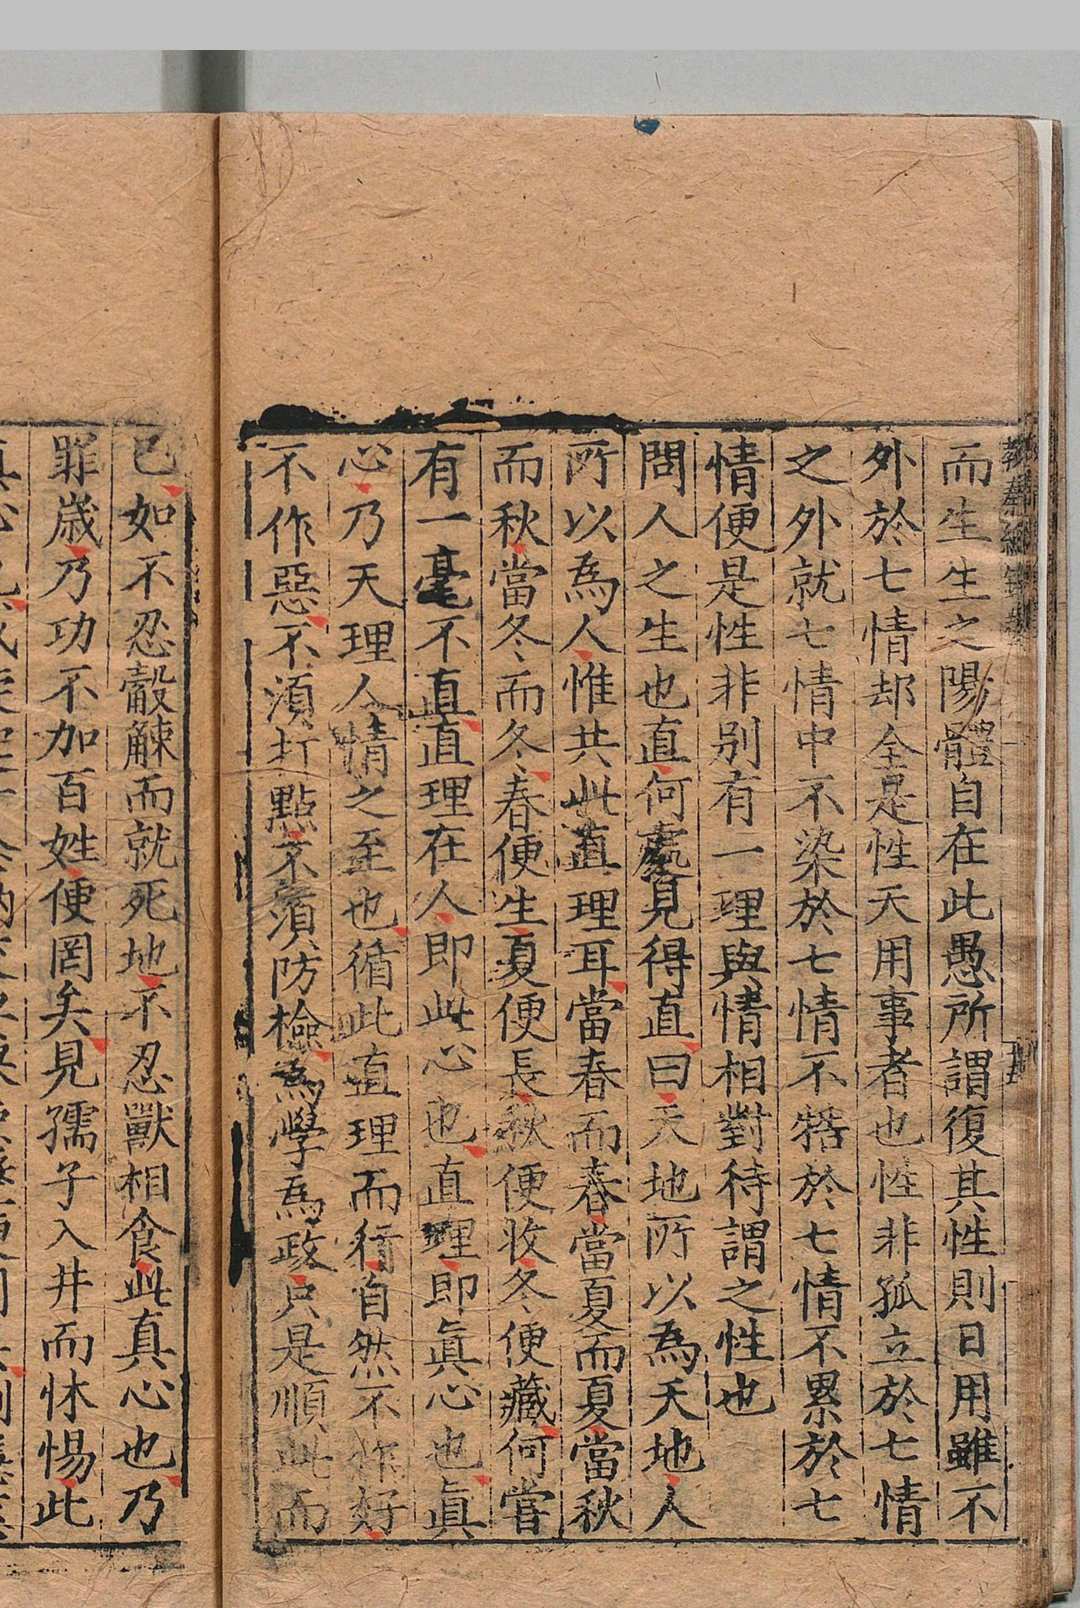 而生生之陽體自在此愚所謂復其性則日用雖不
外於七情却全是性天用事者也性非孤立於七情
之外就七情中不染於七情不牿於七情不累於七
情便是性非别有一理與情相對待謂之性也
問人之生也直何處見得直曰天地所以為天地人
所以為人惟共此直理耳當春而春當夏而夏當秋
而秋當冬而冬春便生夏便長秋便收冬便藏何嘗
有一毫不直直理在人即此心也直理即眞心也眞
心乃天理人情之至也循此直理而行自然不作好
不作惡不須打點不須防檢為學為政只是順此而
已如不忍觳觫而就死地不忍獸相食此真心也乃
罪歲乃功不加百姓便罔矣見孺子入井而怵惕此